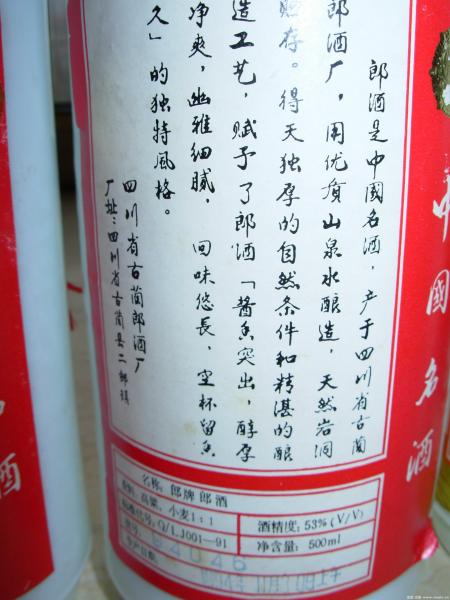 郎酒是中國名酒，产于四川省古蔺
郎酒厂，用优质山泉水酿造，天然岩洞
贮存。得天独厚的自然条件和精湛的酿
造工艺，赋予了郎酒「酱香突出，醇厚
净爽，幽雅细腻，回味悠長，空杯留香
久」的独特風格。
四川省古蔺郎酒厂
厂址：四川省古蔺县二郎镇
中國名酒
酒
名称：郎牌郎酒
原料：高粱、小麦1：1
标准代号：Q/LJ001—91
酒精度：53%(V/V)
净含量：500ml
批号：94046
生产日期：